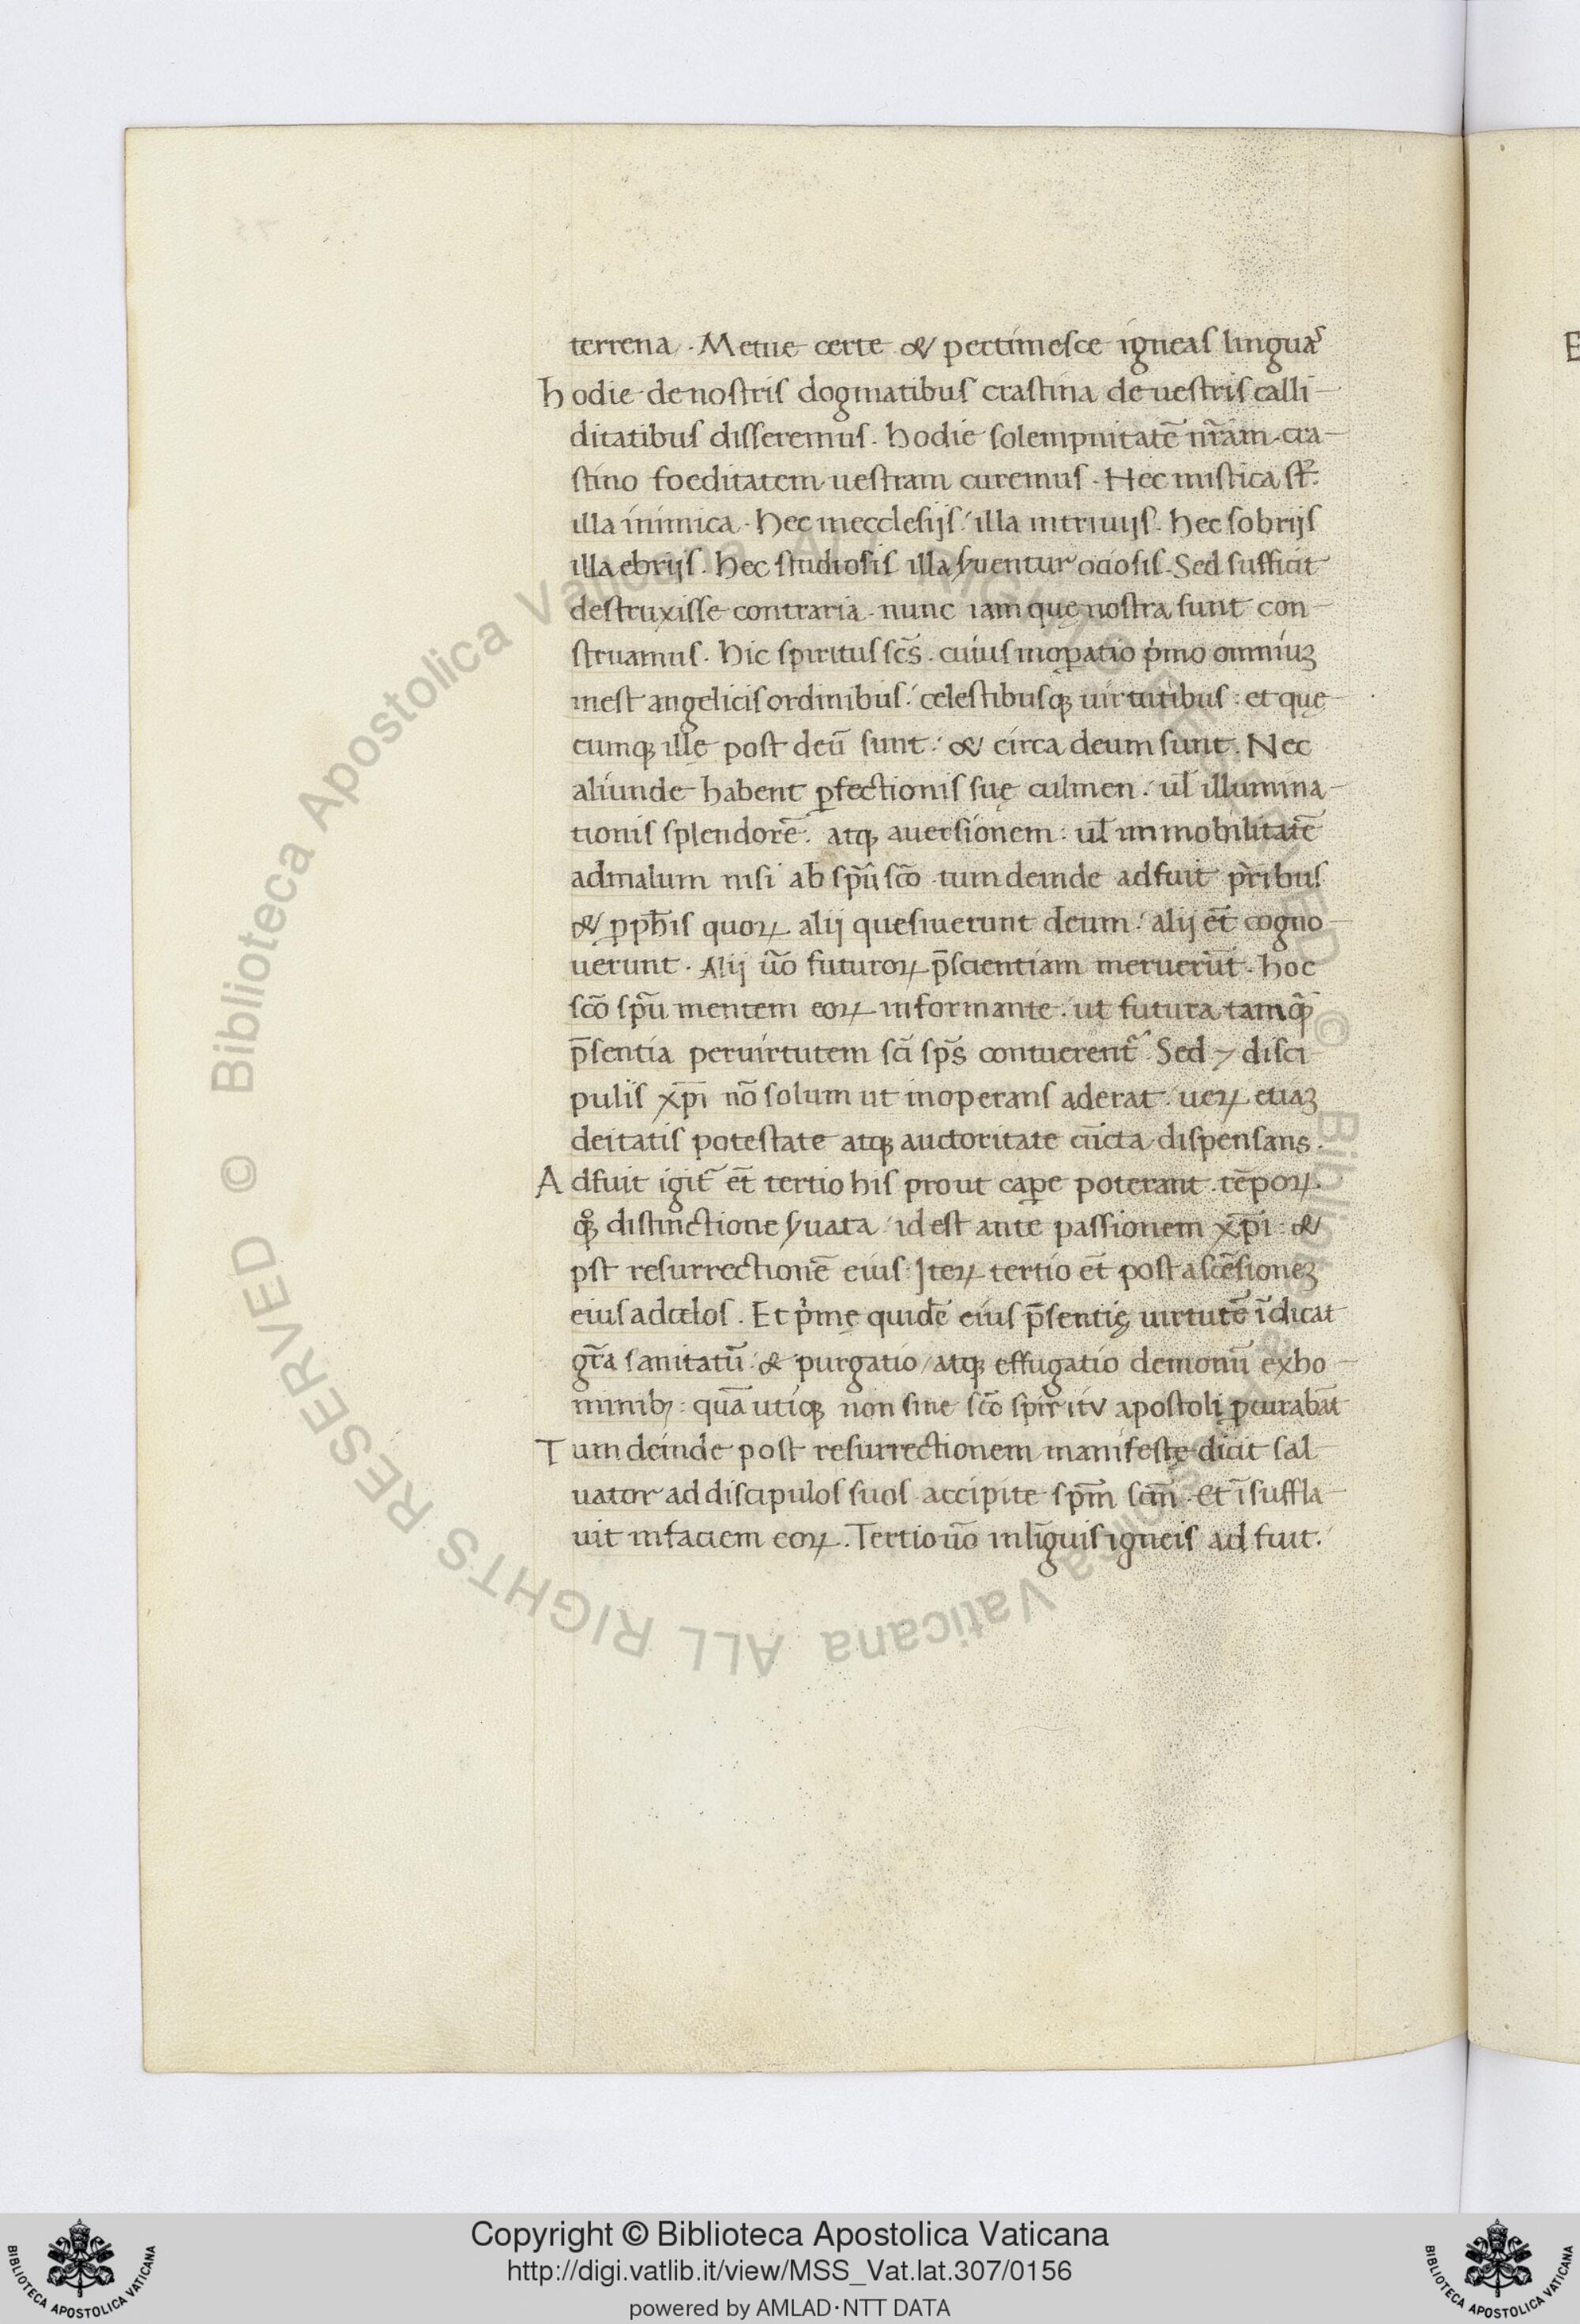 terrena. Metue certe & pertimesce igneas linguas
hodie de nostris dogmatibus crastina de uestris calli
ditatibus disseremus. hodie solempnitatē nr̄am. cra
stino foeditatem uestram curemus. Hec mistica st̄:
illa inimica. hec in ecclesijs: illa in triuijs. hec sobrijs
illa ebrijs. hec studiosis illa ẜuentur ociosis. Sed sufficit
destruxisse contraria. nunc iam quę nostra sunt con
struamus. hic spiritus sc̄s. cuius inoꝑatio pͥmo omniuꝫ
inest angelicis ordinibus: celestibusqꝫ uirtutibus: et quę
cumqꝫ illę post deū sunt: & circa deum sunt. Nec
aliunde habent ꝑfectionis suę culmen: ul̄ illumina
tionis splendorē: atqꝫ auersionem: ul̄ immobilitatē
ad malum nisi ab sp̄u sc̄o tum deinde adfuit pr̄ibus
& ꝓph̄is quoꝝ alij quesiuerunt deum: alij et̄ cogno
uerunt. Alij ūo futuroꝝ p̄scientiam meruerūt. hoc
sc̄o sp̄u mentem eoꝝ informante: ut futura tamqͣꝫ
p̄sentia per uirtutem sc̄i sp̄s contuerent᷑. Sed ⁊ disci
pulis xp̄i nō solum ut inoperans aderat: ueꝝ etiaꝫ
deitatis potestate atqꝫ auctoritate cūcta dispensans.
Adfuit igit᷑ et̄ tertio his prout caꝑe poterant. tēpoꝝ
qͦꝫ distinctione ẜuata: id est ante passionem xp̄i: &
pst resurrectionē eius: Iteꝝ tertio et̄ post ascēsioneꝫ
eius ad cęlos. Et pͥmę quidē eius p̄sentię uirtutē īdicat
gr̄a sanitatū: & purgatio, atqꝫ effugatio demonū ex ho
minibꝫ: quā utiqꝫ non sine sc̄o spiritv apostoli ꝓcurabāt
Tum deinde post resurrectionem manifestę dicit sal
uator ad discipulos suos. accipite sp̄m sc̄m. Et īsuffla
uit in faciem eoꝝ. Tertio ūo in līguis igneis ad fuit:
E
Copyright © Biblioteca Apostolica Vaticana
http://digi.vatlib.it/view/MSS_Vat.lat.307/0156
powered by AMLAD·NTT DATA
BIBLIOTECA APOSTOLICA VATICANA
BIBLIOTECA APOSTOLICA VATICANA
© Biblioteca Apostolica Vaticana ALL RIGHTS RESERVED © Biblioteca Apostolica Vaticana ALL RIGHTS RESERVED